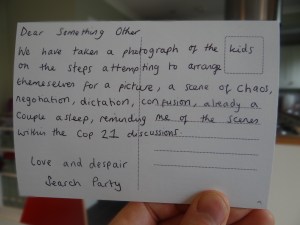 Dear Something Other
We have taken a photograph of the kids
on the steps attempting to arrange
themselves for a picture, a scene of chaos,
negotiation, dictation, confusion, already a
couple asleep, reminding me of the scenes
within the Cop 21 discussions
Love and despair
Search Party